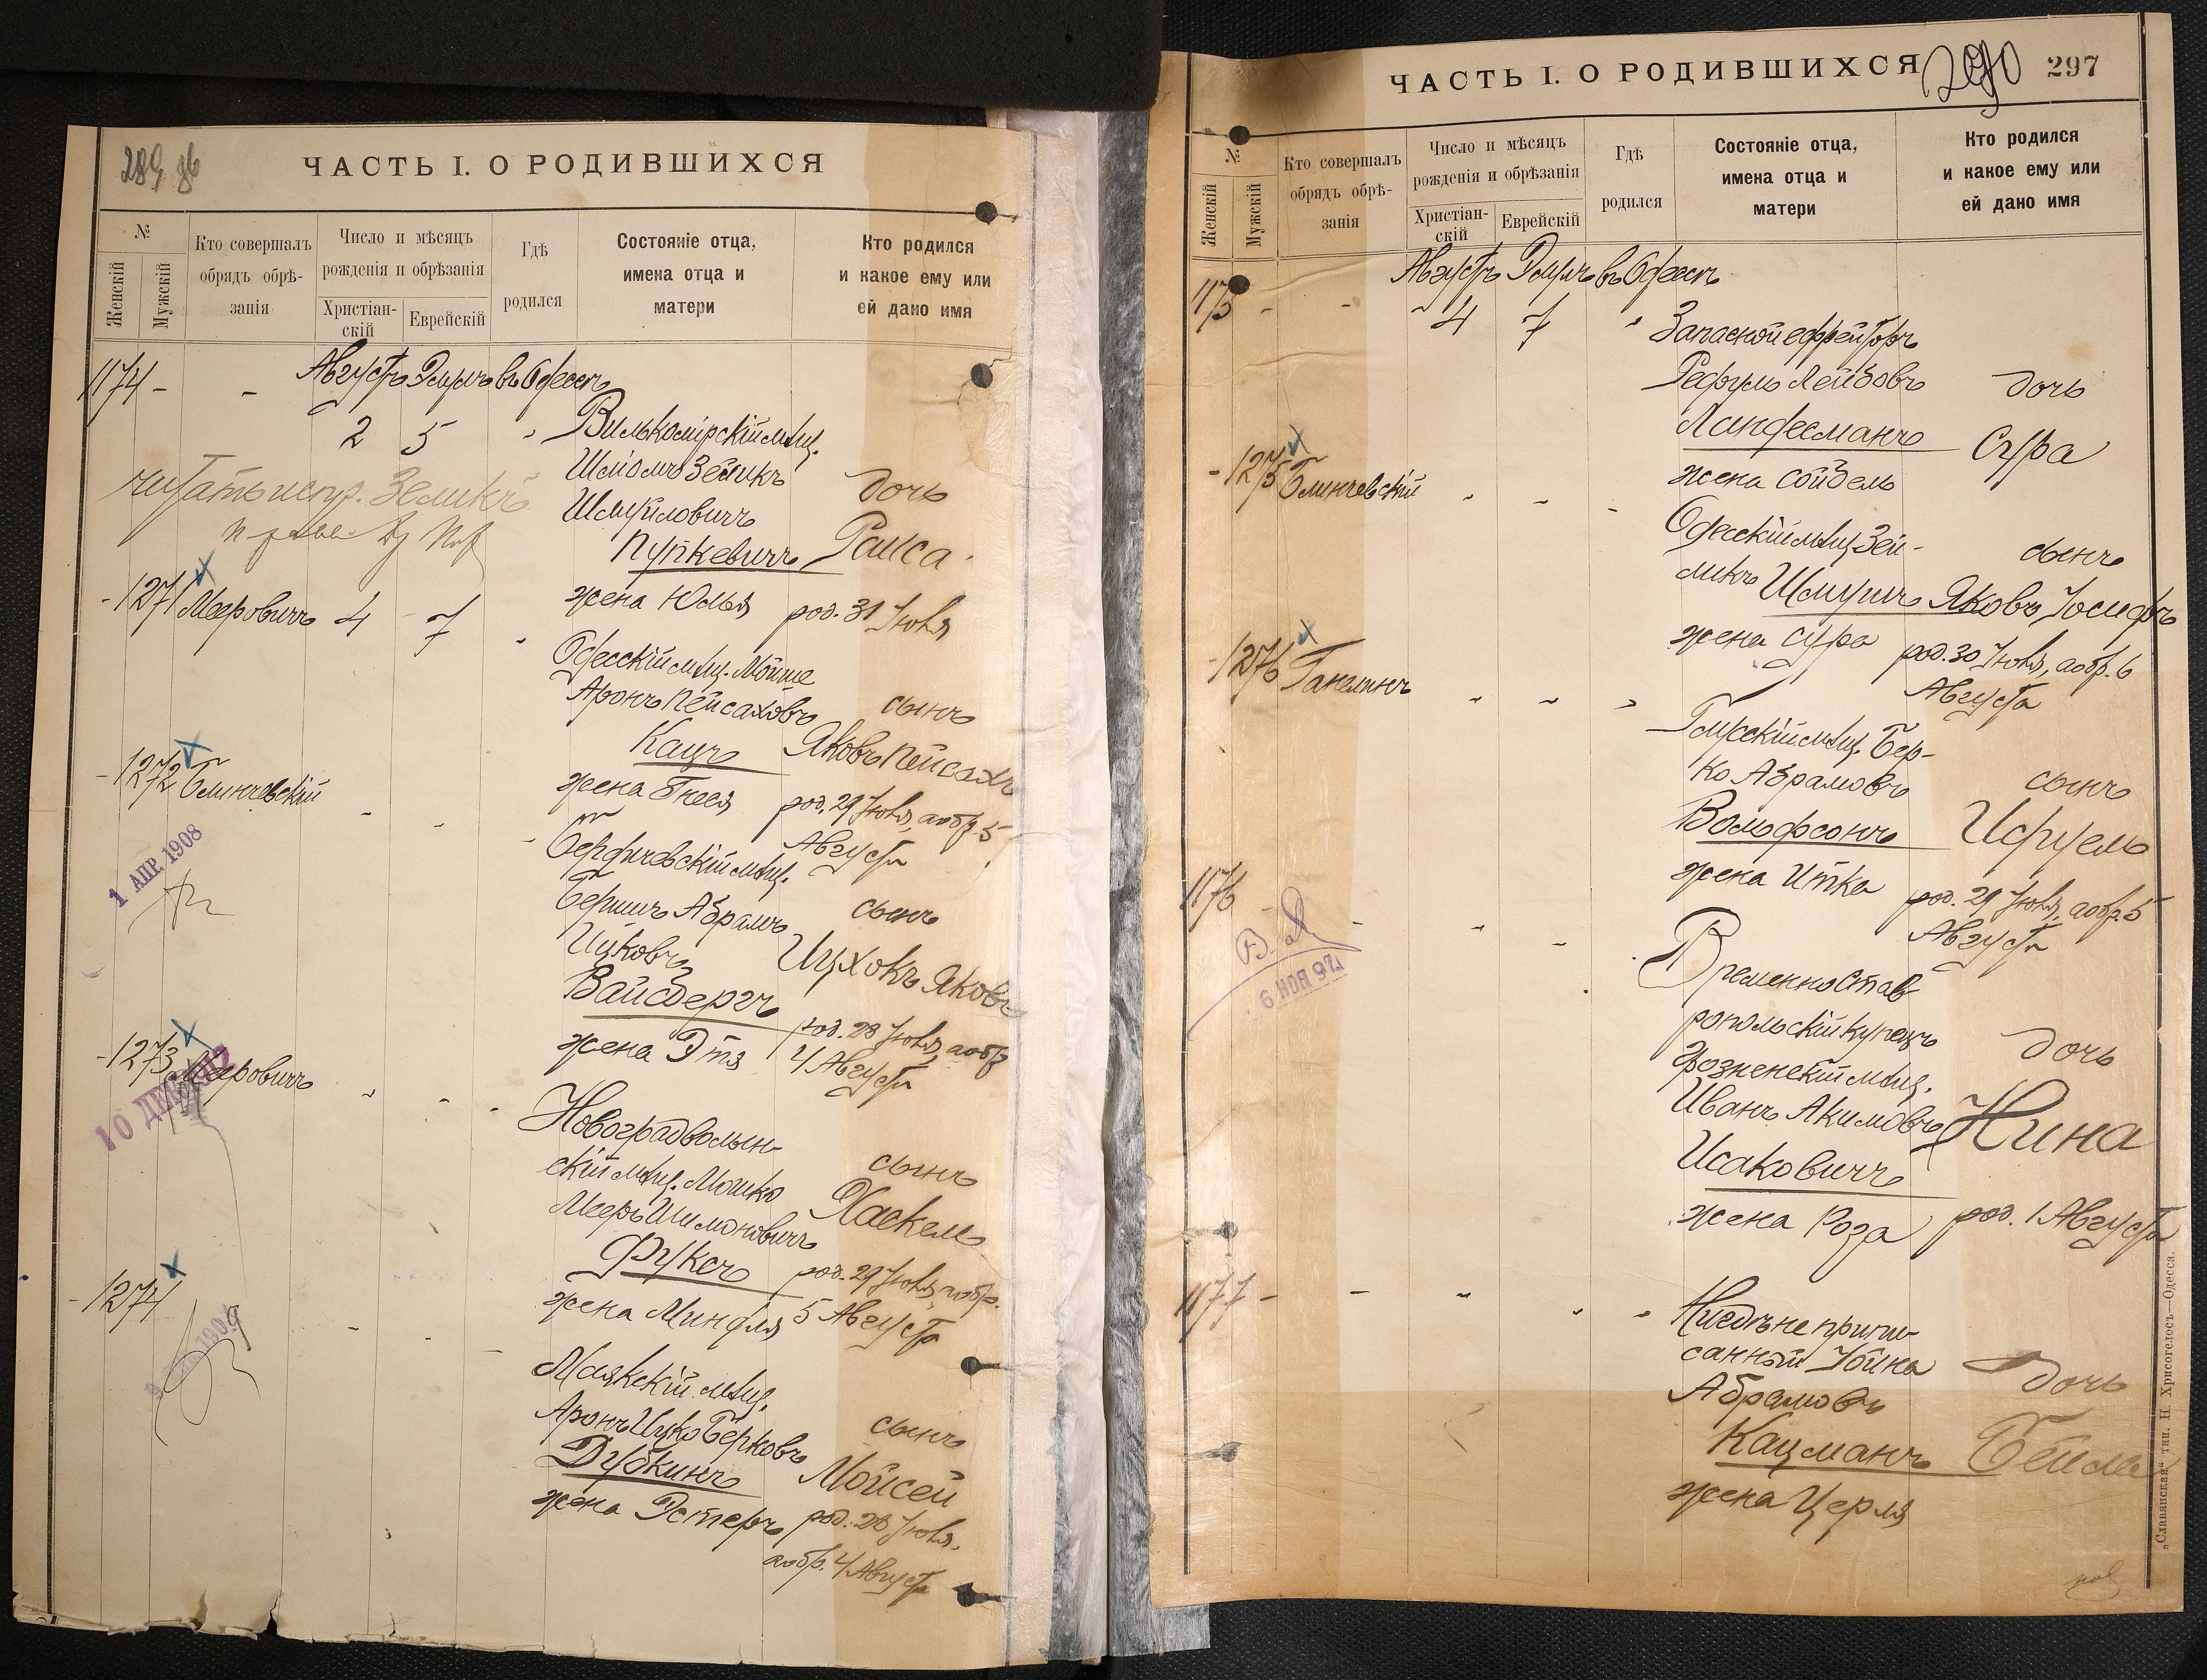 289 зв
ЧАСТЬ I. О РОДИВШИХСЯ
№
Женскій
Мужскій
Кто совершалъ
обрядъ обрѣ-
занія
Число и мѣсяцъ
рожденія и обрѣзанія
Христіан-
скій
Еврейскій
Гдѣ
родился
Состояніе отца,
имена отца и
матери
Кто родился
и какое ему или
ей дано имя
Августъ Элулъ въ Одессѣ
1174 - - 2 5 "
Вилькомірскій мѣщ.
Шліомъ Зеликъ
Шмуйловичъ
Пупкевичъ
жена Юлья
дочь
Раиса
род. 31 Іюля
читать испр. Зеликъ
- 1271 Мееровичъ 4 7 "
Одесскій мѣщ. Мойше
Аронъ Пейсаховъ
Кацъ
жена Гнеся
сынъ
Яковъ Пейсахъ
род. 29 Іюля, а обр. 5
Августа
- 1272 Блинчевскій " " "
1 АПР. 1908
Бердичевскій мѣщ.
Бершъ Абрамъ
Ицковъ
Вайсбергъ
жена Этя
сынъ
Ицхокъ Яковъ
род. 28 Іюля, а обр
4 Августа
- 1273 Мееровичъ " " "
Новоградволын-
скій мѣщ. Мошко
Мееръ Шимоновичъ
Фуксъ
жена Миндля
сынъ
Хаскель
род. 29 Іюля, а обр.
5 Августа
- 1274
Маякскій мѣщ.
Аронъ Ицко Берковъ
Дубкинъ
жена Эстеръ
сынъ
Мойсей
род. 28 Іюля,
а обр. 4 Августа
ЧАСТЬ I. О РОДИВШИХСЯ
290
297
№
Женскій
Мужскій
Кто совершалъ
обрядъ обрѣ-
занія
Число и мѣсяцъ
рожденія и обрѣзанія
Христіан-
скій
Еврейскій
Гдѣ
родился
Состояніе отца,
имена отца и
матери
Кто родился
и какое ему или
ей дано имя
Августъ Элулъ въ Одессѣ
1175 - - 4 7 "
Запасной ефрейторъ
Лейбовъ
Ландесманъ
жена Сойбель
дочь
Сура
- 1275 Блинчевскій " " "
Одесскій мѣщ. Зей-
ликъ Шмуличъ
жена Сура
сынъ
Яковъ Іосифъ
род. 30 Іюля, а обр. 6
Августа
- 1276 Ганелинъ " " "
Глусскій мѣщ. Бер-
ко Абрамовъ
Вольфсонъ
жена Итка
сынъ
Исруель
род. 29 Іюля, а обр. 5
Августа
1176 - - " "
9 НОЯ 926
Временно Став-
ропольскій купецъ
Грозненскій мѣщ.
Иванъ Акимовъ
Исаковичъ
жена Роза
дочь
Нина
род. 1 Августа
1177 - - " " "
Нигдѣ не припи-
санный Іойна
Абрамовъ
Кацманъ
жена Церля
дочь
Бейла
„Славянская“ тип. Н. Хрисогелосъ—Одесса.